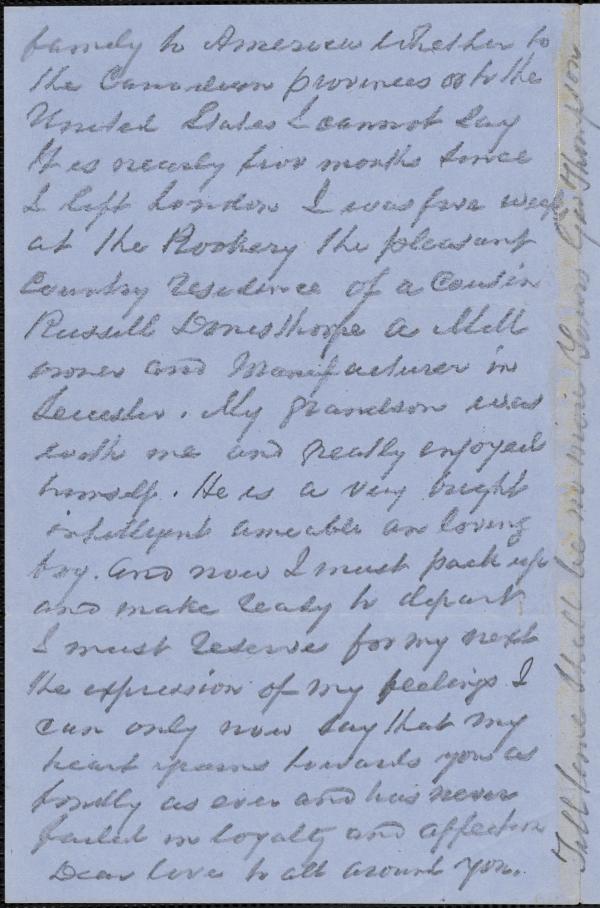 family to America whether to
the Canadian provinces or to the
United States I cannot say
It is nearly two months since
I left London I was five weeks
at the Rookery the pleasant
Country residence of a Cousin
Russell Donisthorpe a Mill
owner and Manufacturer in
Leicester. My grandson was
with me and really enjoyed
himself. He is a very bright
intelligent amiable an loving
boy. And now I must pack up
and make ready to depart
I must reserve for my next
the expression of my feelings I
can only now say that my
heart yearns towards you as
fondly as ever and has never
failed in loyalty and affection
Dear love to all around you.
Till time shall be no more Yours Geo Thompson